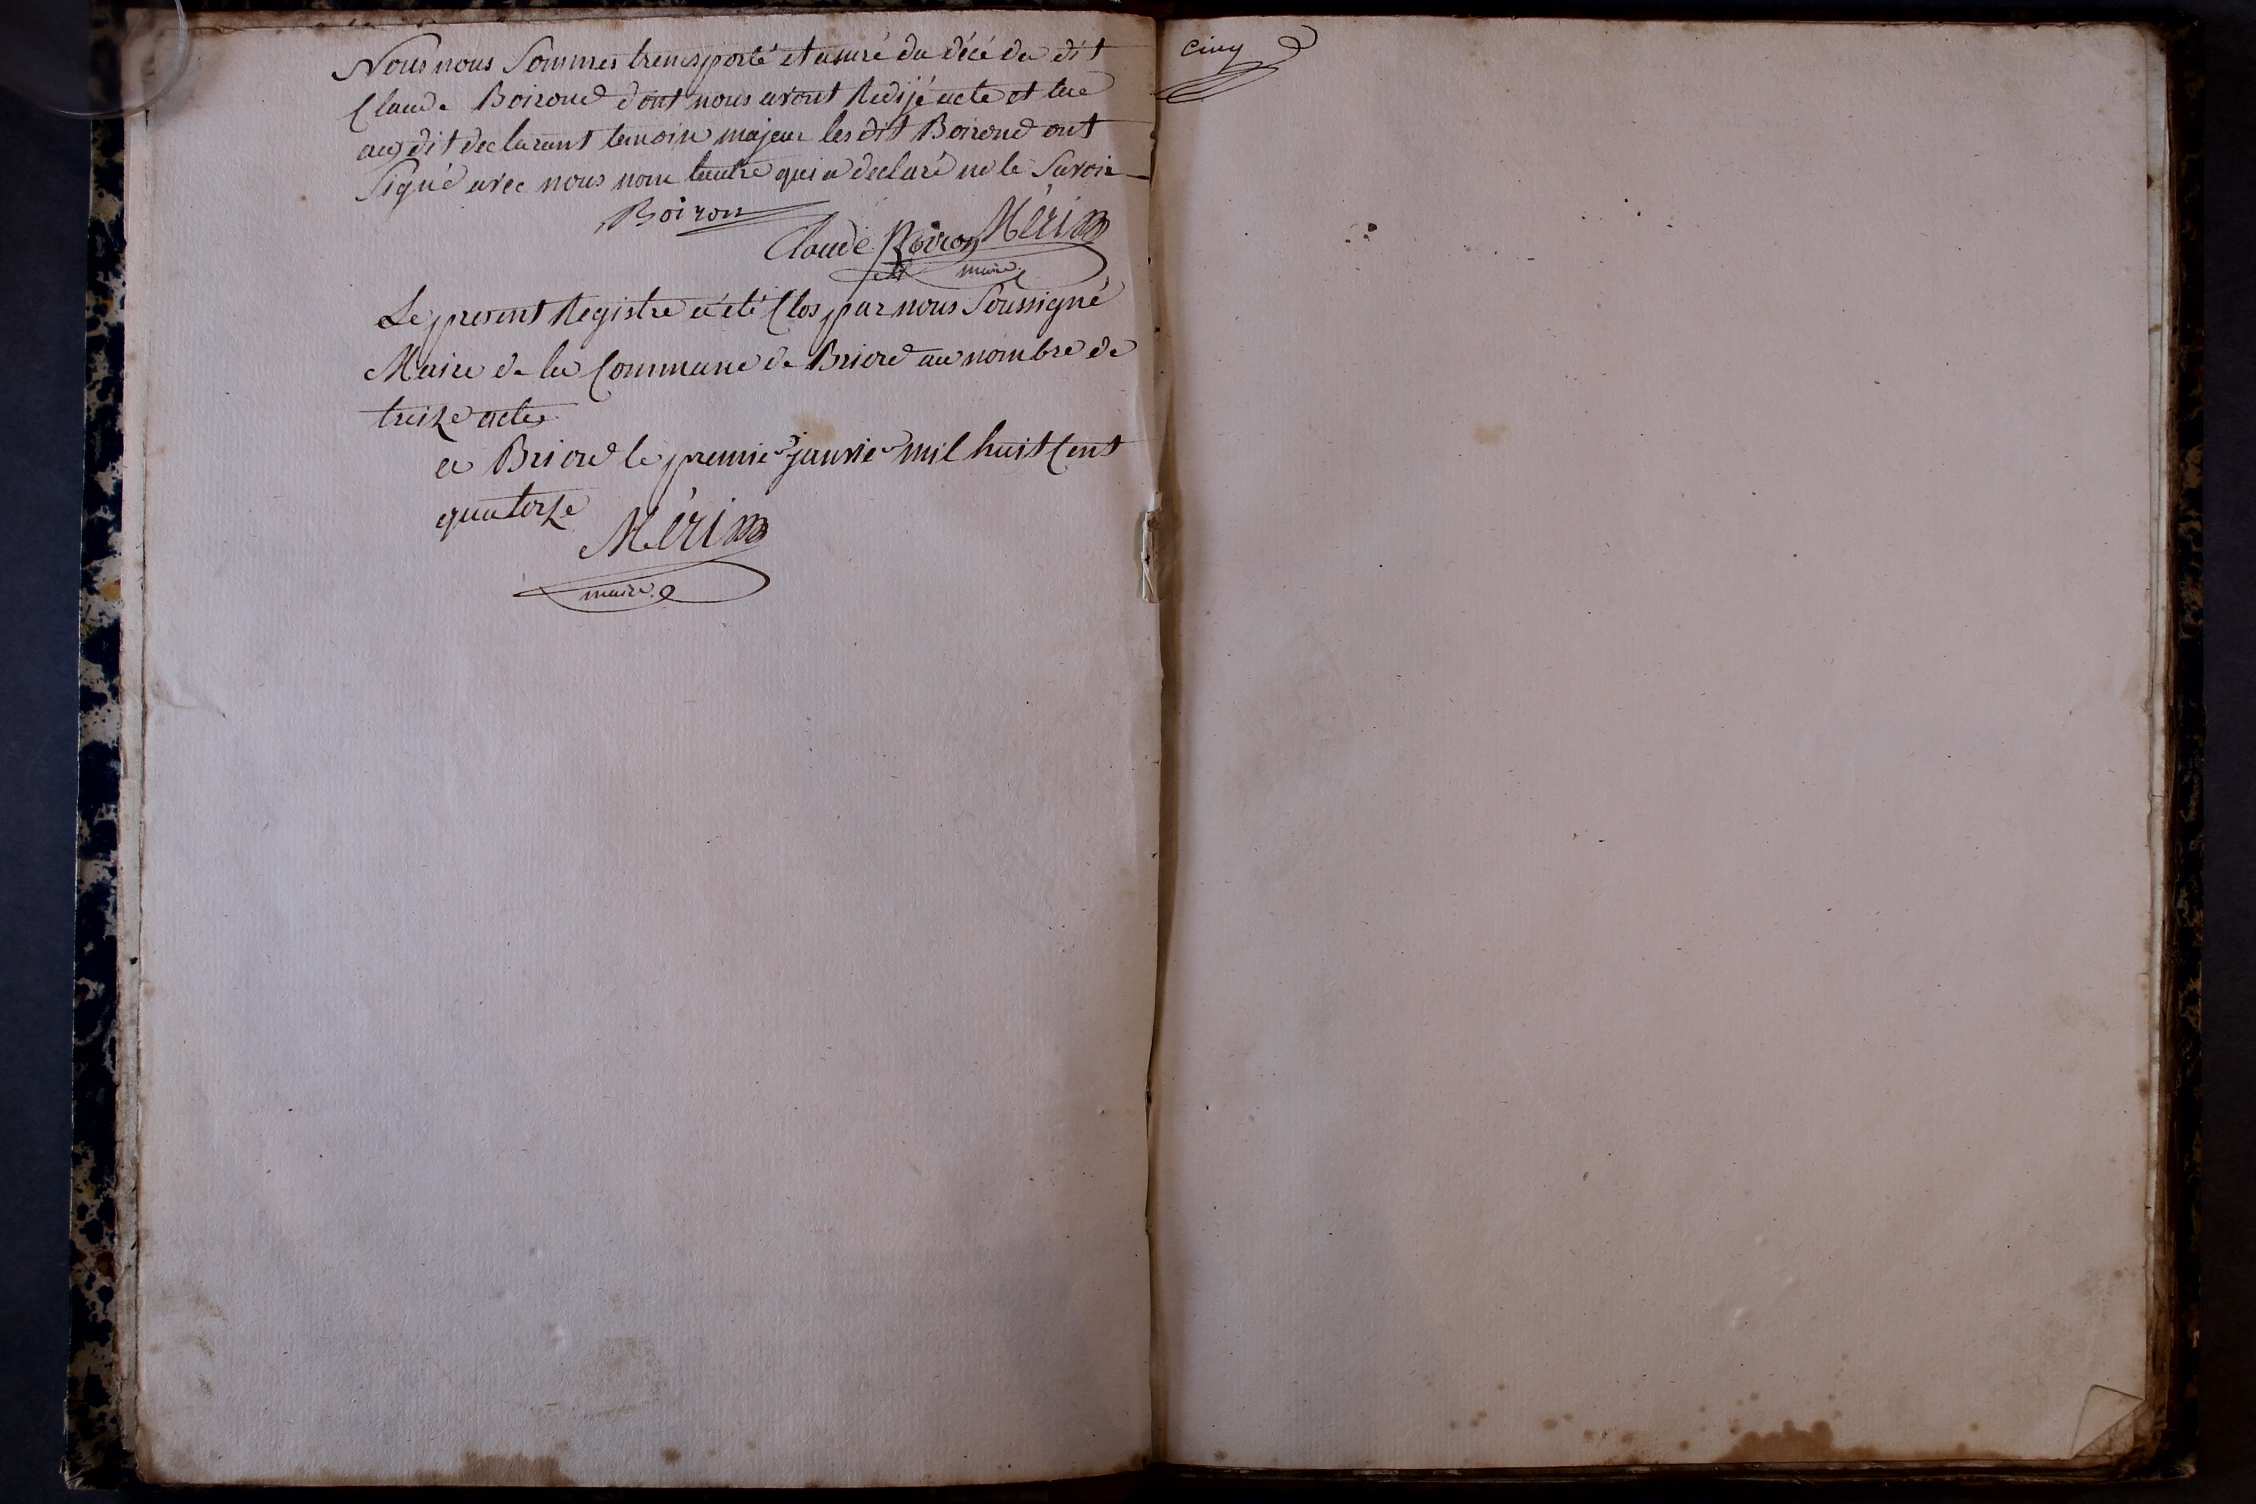 Nous nous Sommes transporté et assuré du décé du dit
Claude Boirond dont nous avont Redijé acte et lue
aux dit declarant temoin majeur les dit Boirond ont
Signé avec nous non lautre qui a declaré ne le Savoir
Boiron
Claude Boiron Mérim
maire
Le present Registre a été Clos par nous Soussigné
Maire de la Commune de Briord au nombre de
treize actes
a Briord le premier janvier mil huit Cent
quatorze
Mérim
maire
cinq